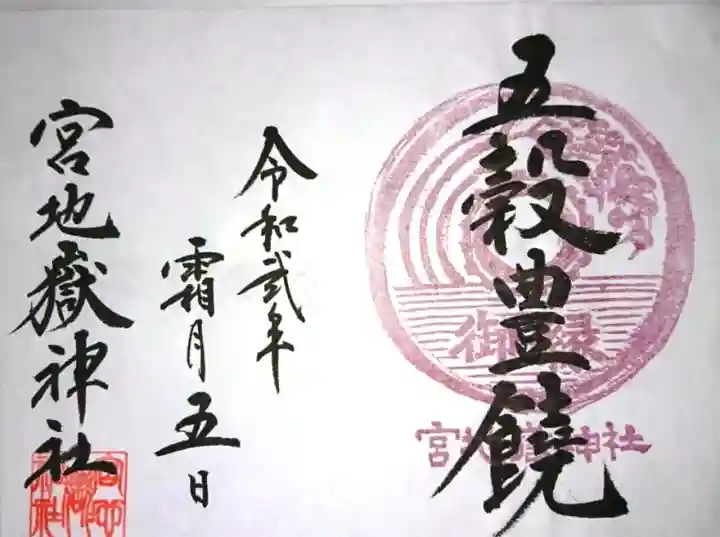 五穀豊饒
御縁
宮地嶽神社
令和弐年
霜月五日
宮地嶽神社
宮地嶽神社